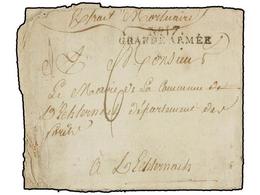 Extrait Mortuaire
No. 17.
GRANDE ARMÉE
A Monsieur
Le Maire de La Commune de
L'Echternach département des
forêts
à L'Echternach